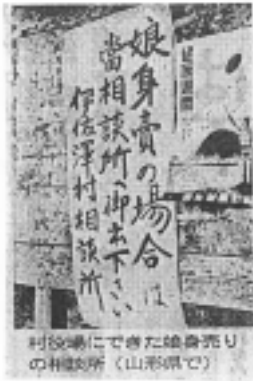 娘身賣の場合は
當相談所へ御出下さい
伊佐澤村相談所
村役場にできた娘身売り
の相談所（山形県で）